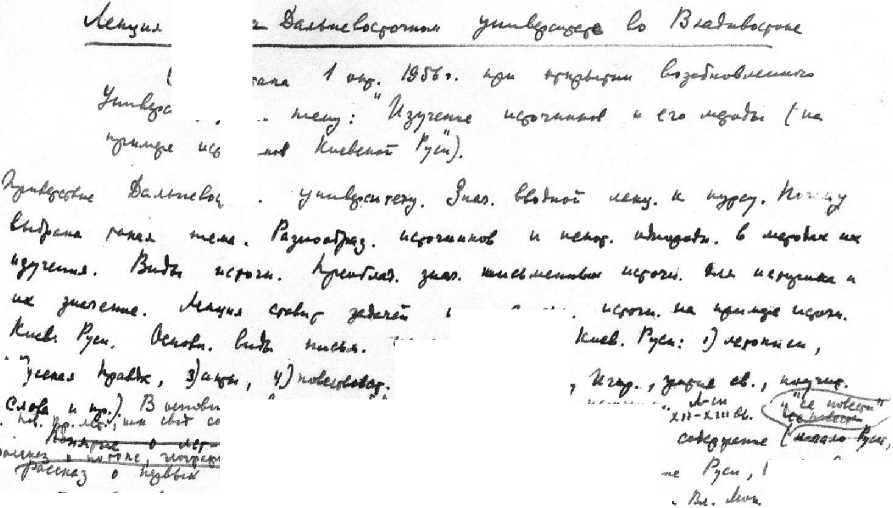 Лекция в Дальневосточном университете во Владивостоке
тана 1 окт. 1956 г. при открытии возобновленного
Универс тему: "Изучение источников и его методы (на
примере ист ков Киевской Руси").
Приветствие Дальневос университету. Знач. вводной лекц. к курсу. Почему
выбрана такая тема. Разнообраз. источников и некот. однородн. в методах их
изучения. Виды источн. Преоблад. знач. письменных источн. для историка и
их значение. Лекция ставит задачей источн. на примере источн.
Киев. Руси. Основн. виды письм. Киев. Руси: 1) летописи,
усская Правда, 3) акты, 4) повествоват. , Игор., жития св., поучит.
Слова и пр.). В
XII-XIII вв. "се повести"
Понятие о лет
содержание (начало Руси,
рассказ о потопе,
рассказ о первых
Руси,
Вл. Мон.